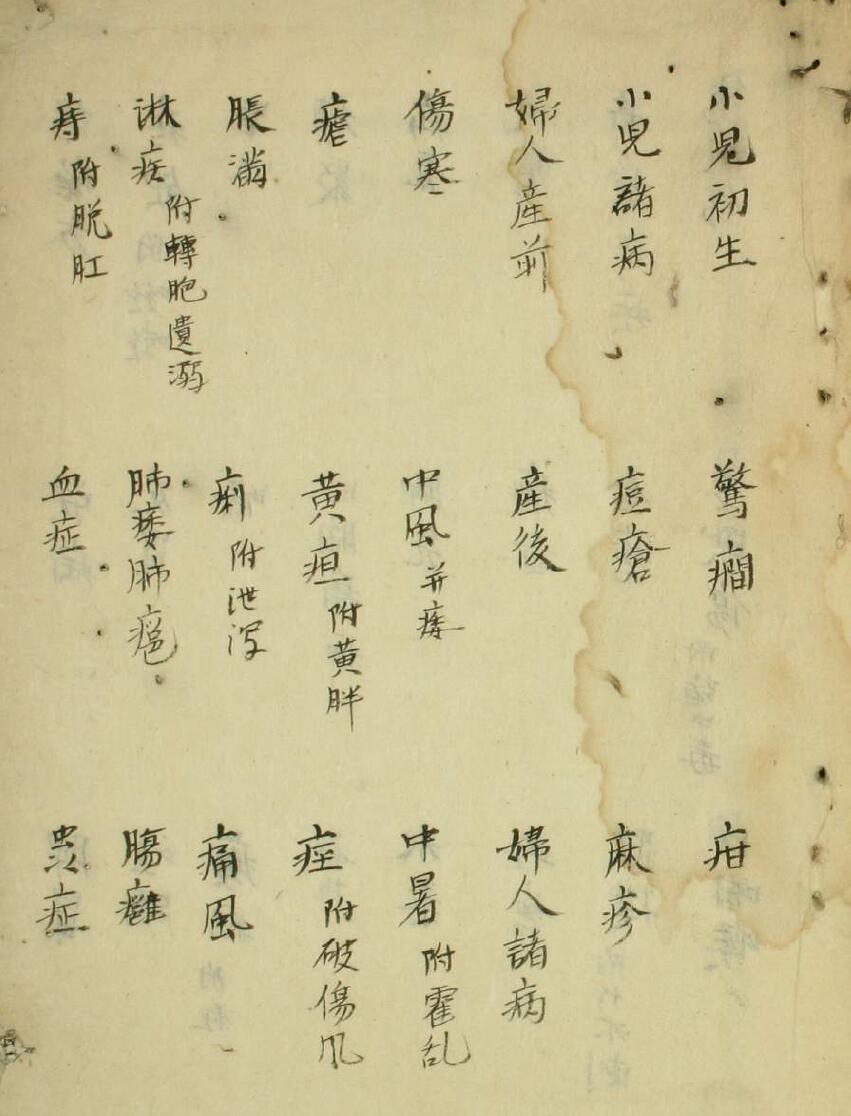 小兒初生　驚癇　疳
小兒諸病　痘瘡　麻疹
婦人産前　産後　婦人諸病
傷寒　中風 并痿　中暑 附霍乱
瘧　黄疸 附黄胖　痙 附破傷風
脹滿　痢 附泄泻　痛風
淋疾 附轉胞遺溺　肺痿肺癰　腸癰
痔 附脱肛　血症　虫症